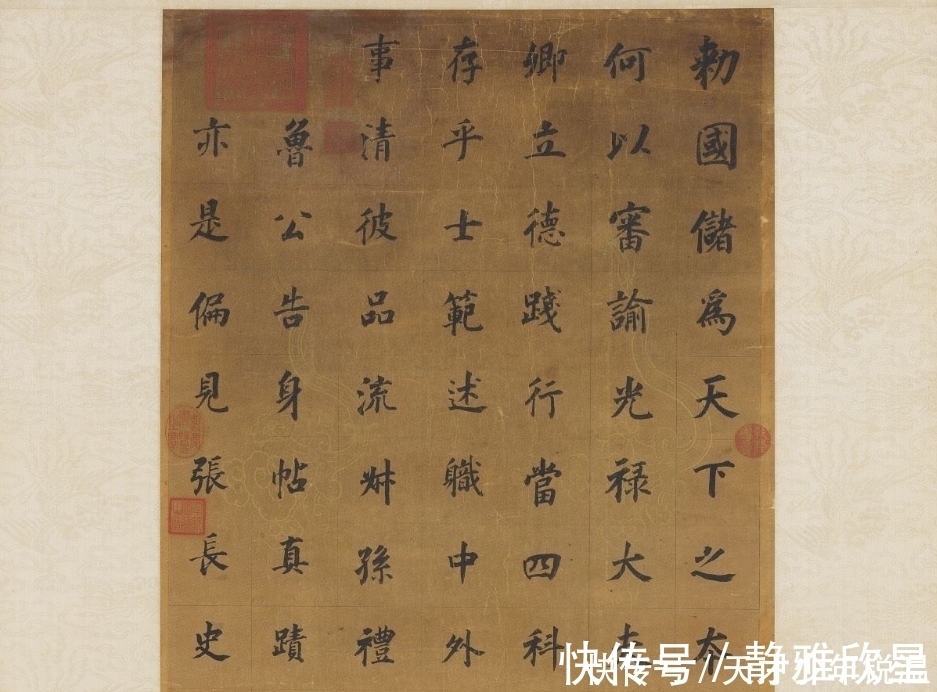 勅國儲爲天下之夲
何以審諭光禄大
卿立德踐行當四科
存乎士範述職中外
事清彼品流叔孫禮
魯公告身帖真蹟
亦是偏見張長史
快传号 / 静雅欣星